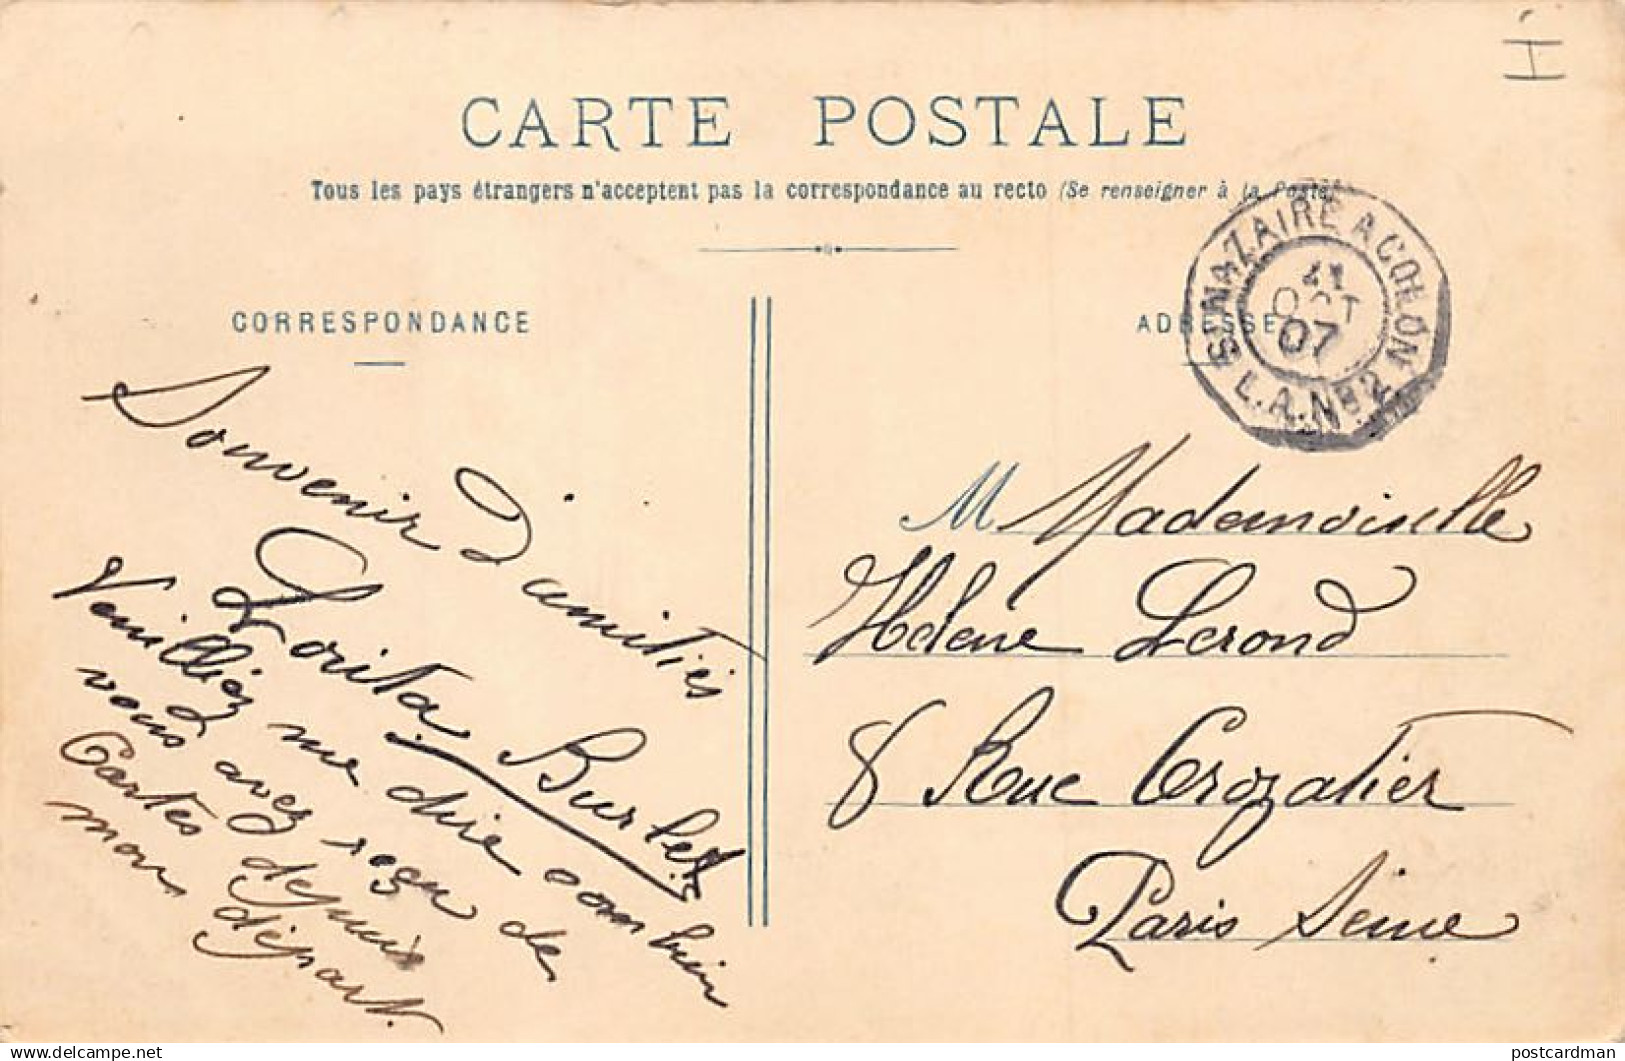 CARTE POSTALE
Tous les pays étrangers n'acceptent pas la correspondance au recto (Se renseigner à la Poste)
CORRESPONDANCE
Souvenir d'amitiés
Lorita
Veuilléz me dire combien
vous avez reçu de
Cartes depuis
mon départ.
ADRESSE
ST NAZAIRE A COLON
OCT
07
L.A. No 2
M Mademoiselle
Hélène Lerond
8 Rue Crozatier
Paris Seine
delcampe.net
postcardman